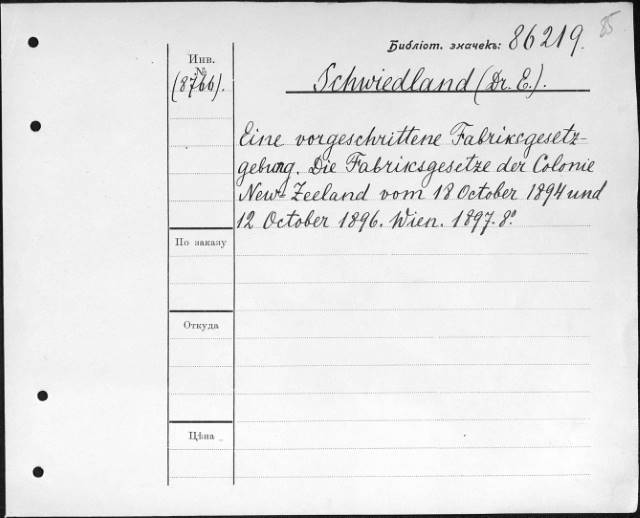 85
Библіот. значекъ: 86219.
Инв.
№
(8766).
Schwiedland (Dr. E.).
Eine vorgeschrittene Fabriksgesetz-
gebung. Die Fabriksgesetze der Colonie
New-Zeeland vom 18 October 1894 und
12 October 1896. Wien. 1897. 8º
По заказу
Откуда
Цѣна